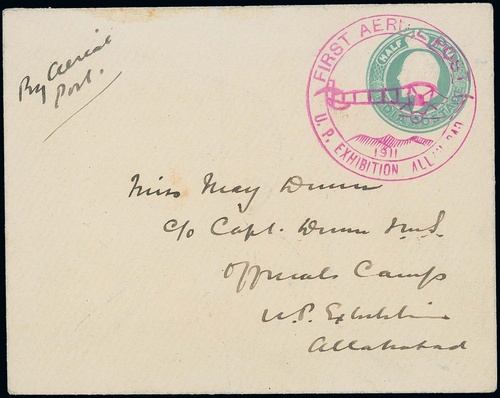 By Aerial
Post.
FIRST AERIAL POST
HALF
INDIA POSTAGE
1911
U. P. EXHIBITION ALLAHABAD
Miss May Dunn
c/o Capt. Dunn
Officials Camp
U.P. Exhibition
Allahabad